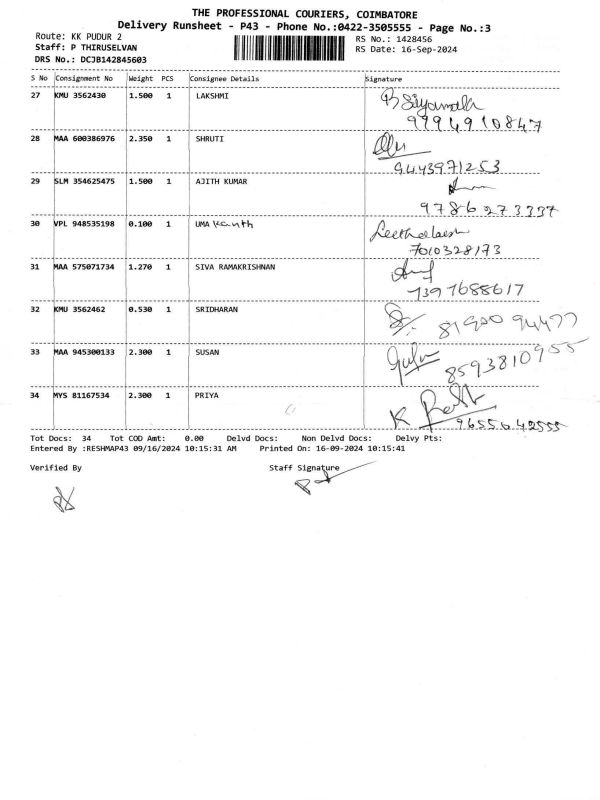 THE PROFESSIONAL COURIERS, COIMBATORE
Delivery Runsheet - P43 - Phone No.:0422-3505555 - Page No.:3
Route: KK PUDUR 2
RS No.: 1428456
Staff: P THIRUSELVAN
RS Date: 16-Sep-2024
DRS No.: DCJB142845603
S No Consignment No Weight PCS Consignee Details Signature
27 KMU 3562430 1.500 1 LAKSHMI
9994910847
28 MAA 600386976 2.350 1 SHRUTI
9443971253
29 SLM 354625475 1.500 1 AJITH KUMAR
9786273337
30 VPL 948535198 0.100 1 UMA Kanth
7010328173
31 MAA 575071734 1.270 1 SIVA RAMAKRISHNAN
7397688617
32 KMU 3562462 0.530 1 SRIDHARAN
33 MAA 945300133 2.300 1 SUSAN
8593810955
34 MYS 81167534 2.300 1 PRIYA
Tot Docs: 34 Tot COD Amt: 0.00 Delvd Docs: Non Delvd Docs: Delvy Pts:
Entered By :RESHMAP43 09/16/2024 10:15:31 AM Printed On: 16-09-2024 10:15:41
Verified By Staff Signature